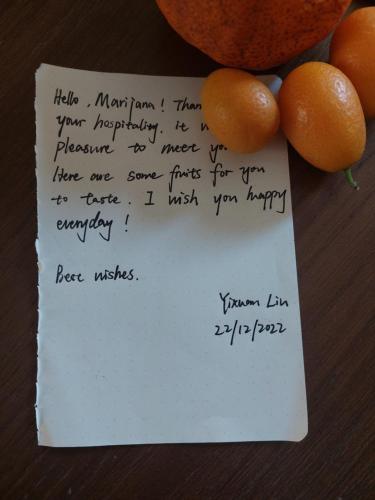 Hello, Marijana! Than
your hospitality. it w
pleasure to meet yo
Here are some fruits for you
to taste. I wish you happy
everyday!
Best wishes.
Yixuan Lin
22/12/2022